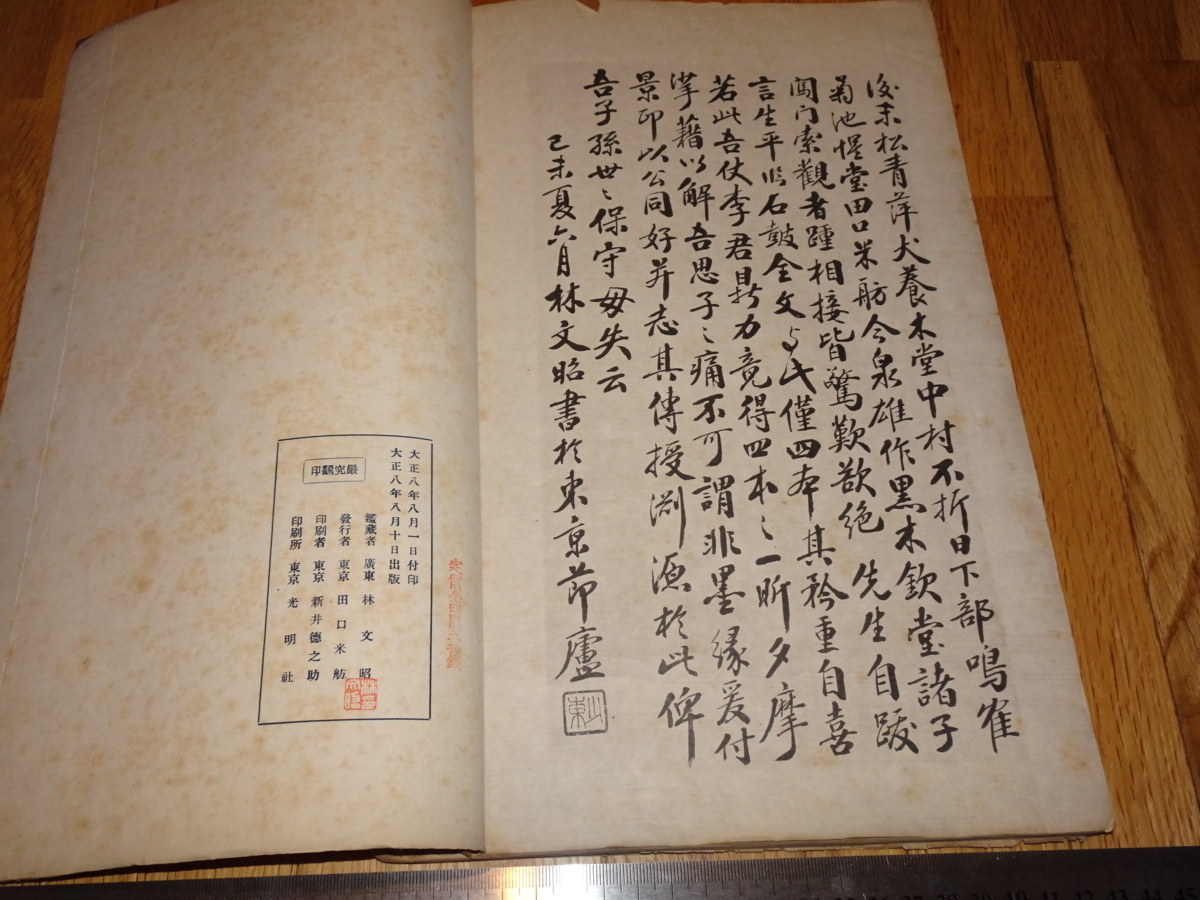 後末松青萍犬養木堂中村不折日下部鳴寉
菊池惺堂田口米舫今泉雄作黒木欽堂諸子
闖門索觀者踵相接皆驚歎欲絶先生自跋
言生平石鼓全文僅四本其矜重自喜
若此吾仗李君力竟得四本之一昕夕摩
挲藉以解吾思子〻痛不可謂非墨緣爰付
景印以公同好并志其傳授淵源於此俾
吾子孫世〻保守毋失云
己未夏六月林文昭書於東京節廬
大正八年八月一日付印
大正八年八月十日出版
嚴究飜印
鑑藏者 廣東 林文昭
發行者 東京 田口米舫
印刷者 東京 新井德之助
印刷所 東京 光明社